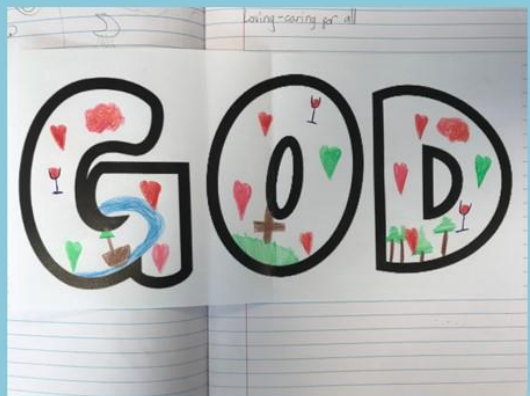 Loving-caring for all
GOD